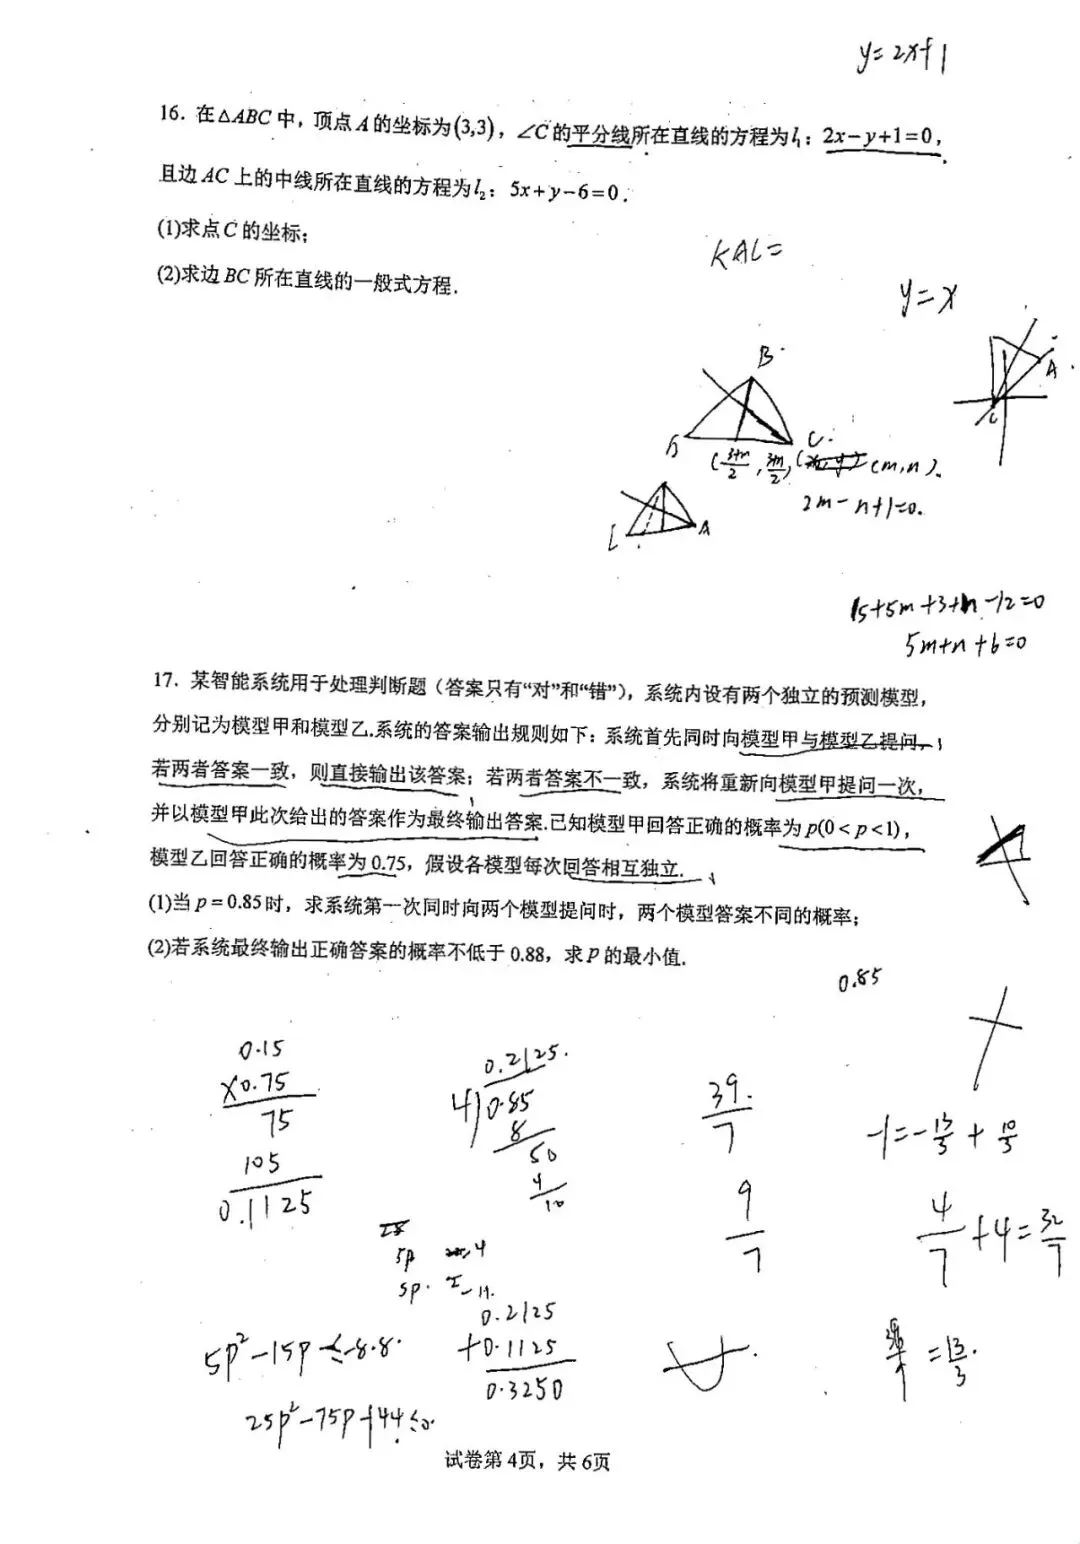 y=2x+1
16. 在△ABC中，顶点A的坐标为(3,3)，∠C的平分线所在直线的方程为l₁：2x−y+1=0，
且边AC上的中线所在直线的方程为l₂：5x+y−6=0．
(1)求点C的坐标；
(2)求边BC所在直线的一般式方程.
KAC=
y=x
B
A
C
C
(m,n).
2m-n+1=0.
A
15+5m+3+n-12=0
5m+n+6=0
17. 某智能系统用于处理判断题（答案只有“对”和“错”），系统内设有两个独立的预测模型，
分别记为模型甲和模型乙.系统的答案输出规则如下：系统首先同时向模型甲与模型乙提问，
若两者答案一致，则直接输出该答案；若两者答案不一致，系统将重新向模型甲提问一次，
并以模型甲此次给出的答案作为最终输出答案.已知模型甲回答正确的概率为p(0<p<1)，
模型乙回答正确的概率为0.75，假设各模型每次回答相互独立.
(1)当p=0.85时，求系统第一次同时向两个模型提问时，两个模型答案不同的概率；
(2)若系统最终输出正确答案的概率不低于0.88，求p的最小值.
0.85
0.15
×0.75
75
105
0.1125
0.2125.
4)0.85
8
50
4
10
39/7
9/7
-1=-13/3+10/3
4/7+4=32/7
=13/3.
5p
5p.
0.2125
+0.1125
0.3250
5p²-15p≤-8.8.
25p²-75p+44≤0.
试卷第4页，共6页